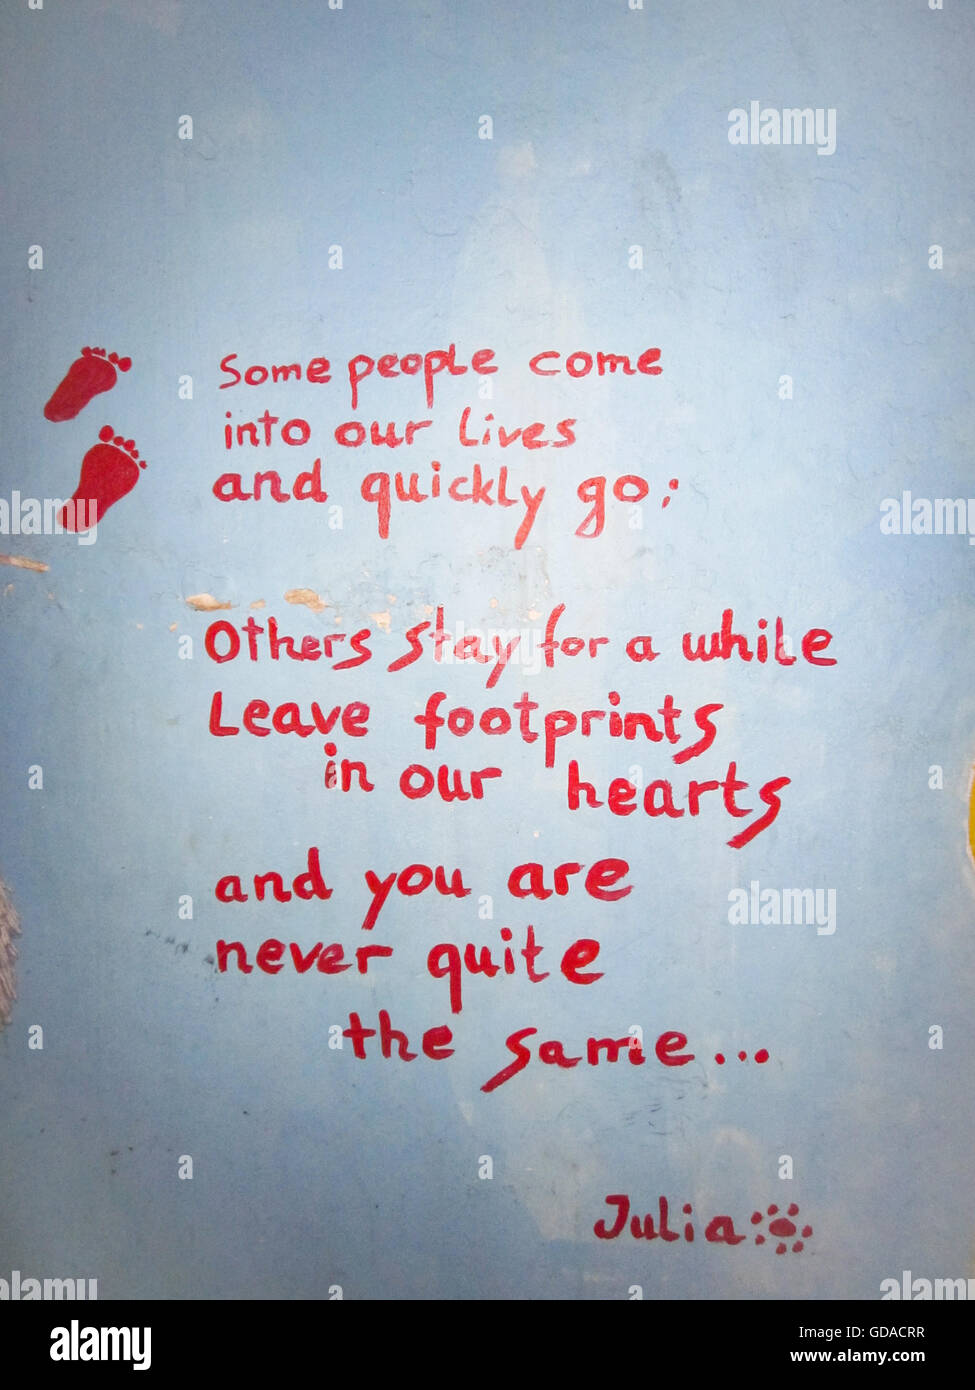 Some people come
into our lives
and quickly go;
Others stay for a while
Leave footprints
in our hearts
and you are
never quite
the same...
Julia
alamy
alamy
alamy
alamy
alamy
alamy stock photo
GDACRR
www.alamy.com